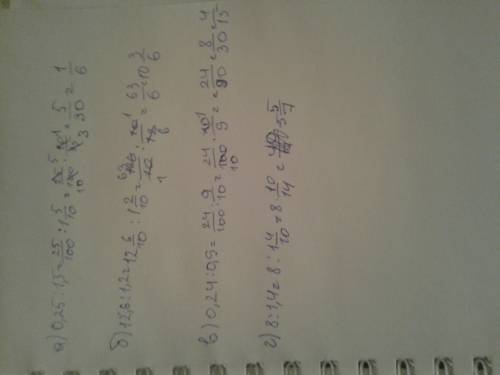 а) 0,25 : 1,5 = 25/100 : 1 5/10 = 25/100 · 10/15 = 5/30 = 1/6
б) 12,6 : 1,2 = 12 6/10 : 1 2/10 = 126/10 : 10/12 = 63/6 = 10 3/6
в) 0,24 : 0,9 = 24/100 : 9/10 = 24/100 · 10/9 = 24/90 = 8/30 = 4/15
г) 8 : 1,4 = 8 : 1 4/10 = 8 · 10/14 = 5 5/7